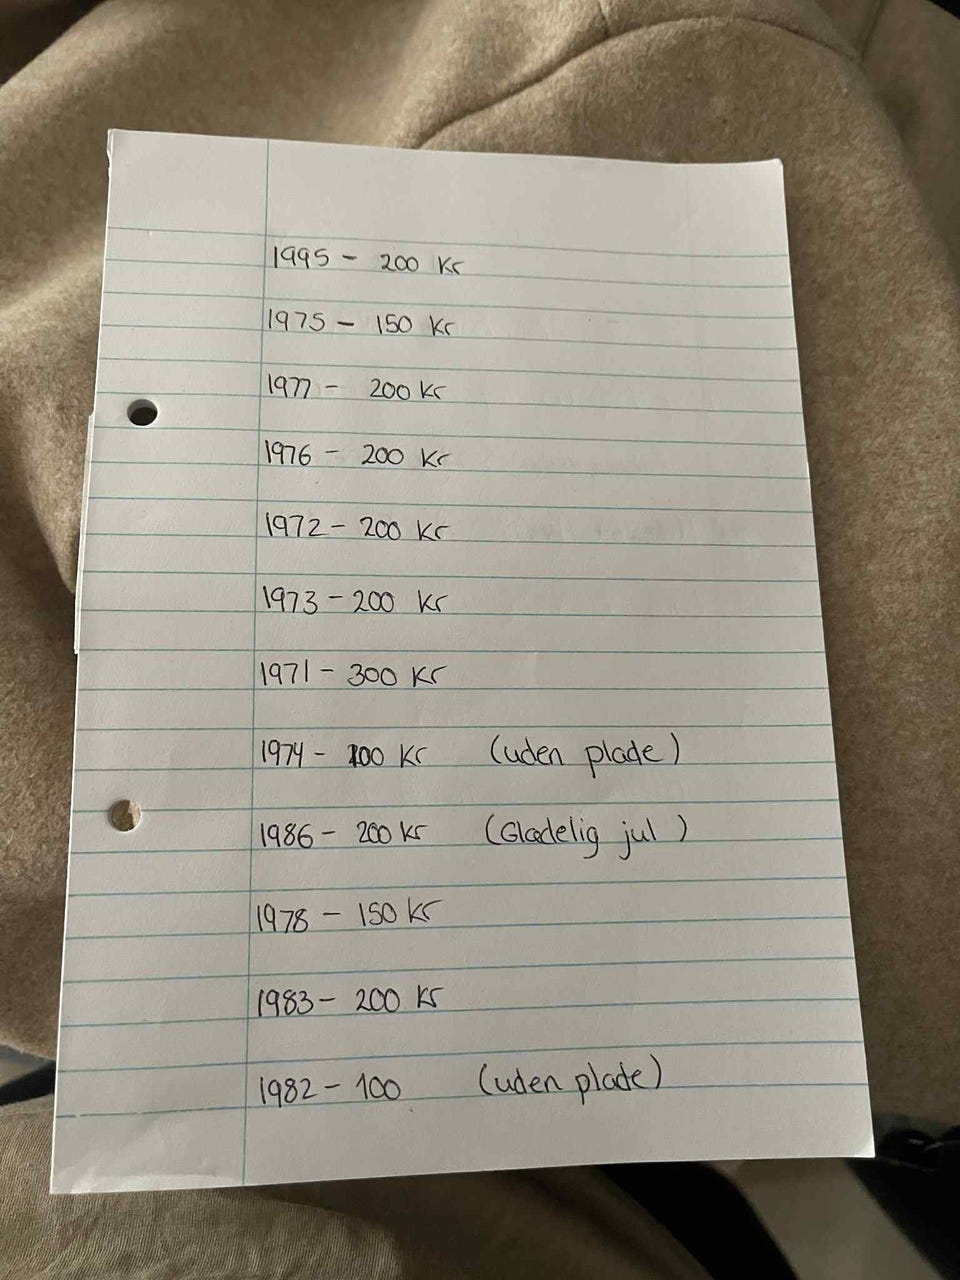 1995 - 200 Kr
1975 - 150 Kr
1977 - 200 Kr
1976 - 200 Kr
1972 - 200 Kr
1973 - 200 Kr
1971 - 300 Kr
1974 - 100 Kr (uden plade)
1986 - 200 Kr (Glædelig jul)
1978 - 150 Kr
1983 - 200 Kr
1982 - 100 (uden plade)